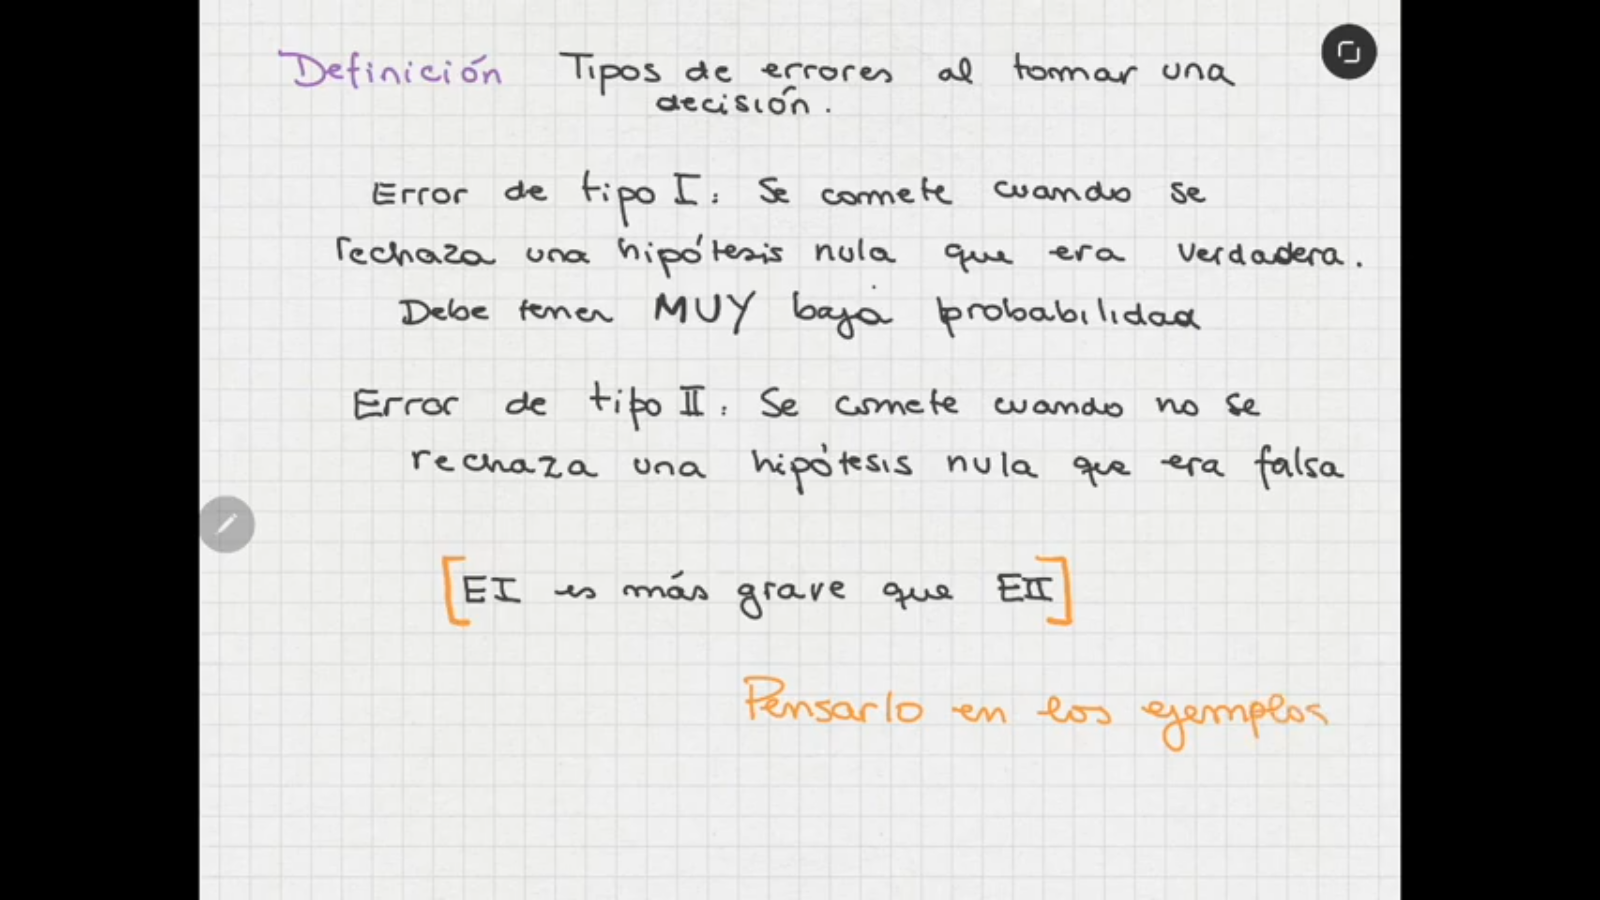 Definición Tipos de errores al tomar una
decisión.
Error de tipo I: Se comete cuando se
rechaza una hipótesis nula que era verdadera.
Debe tener MUY baja probabilidad
Error de tipo II: Se comete cuando no se
rechaza una hipótesis nula que era falsa
[EI es más grave que EII]
Pensarlo en los ejemplos